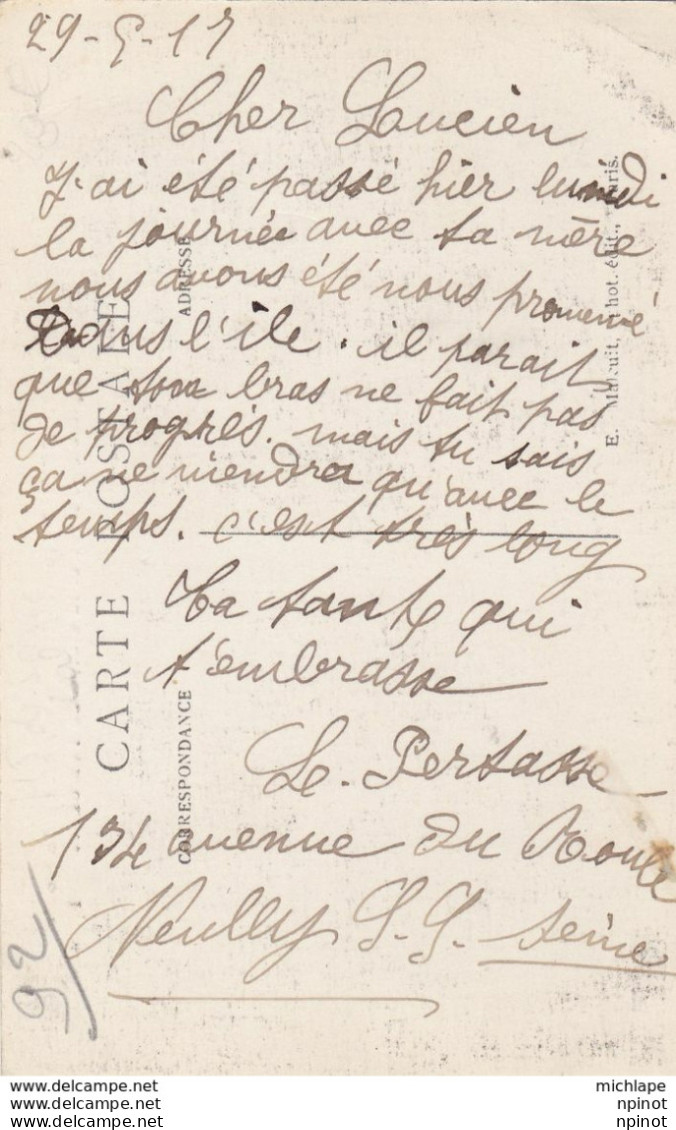 29-5-17
Cher Lucien
J'ai été passé hier lundi
la journée avec ta mère
nous avons été nous promené
Dans l'île. il parait
que ton bras ne fait pas
de progrès. mais tu sais
ça ne viendra qu'avec le
temps. c'est très long
Ta tante qui
t'embrasse
Le. Pertasse
134 avenue du Roule
Neully S-S- seine
92
CARTE POSTALE
CORRESPONDANCE
ADRESSE
E. phot. édit., Paris.
michlape
npinot
npinot